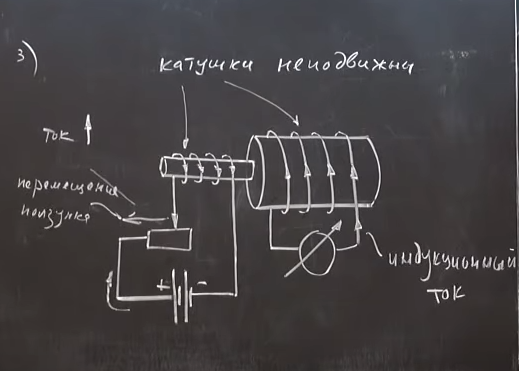 3)
катушки неподвижны
ток
перемещение
ползунка
+ -
индукционный
ток